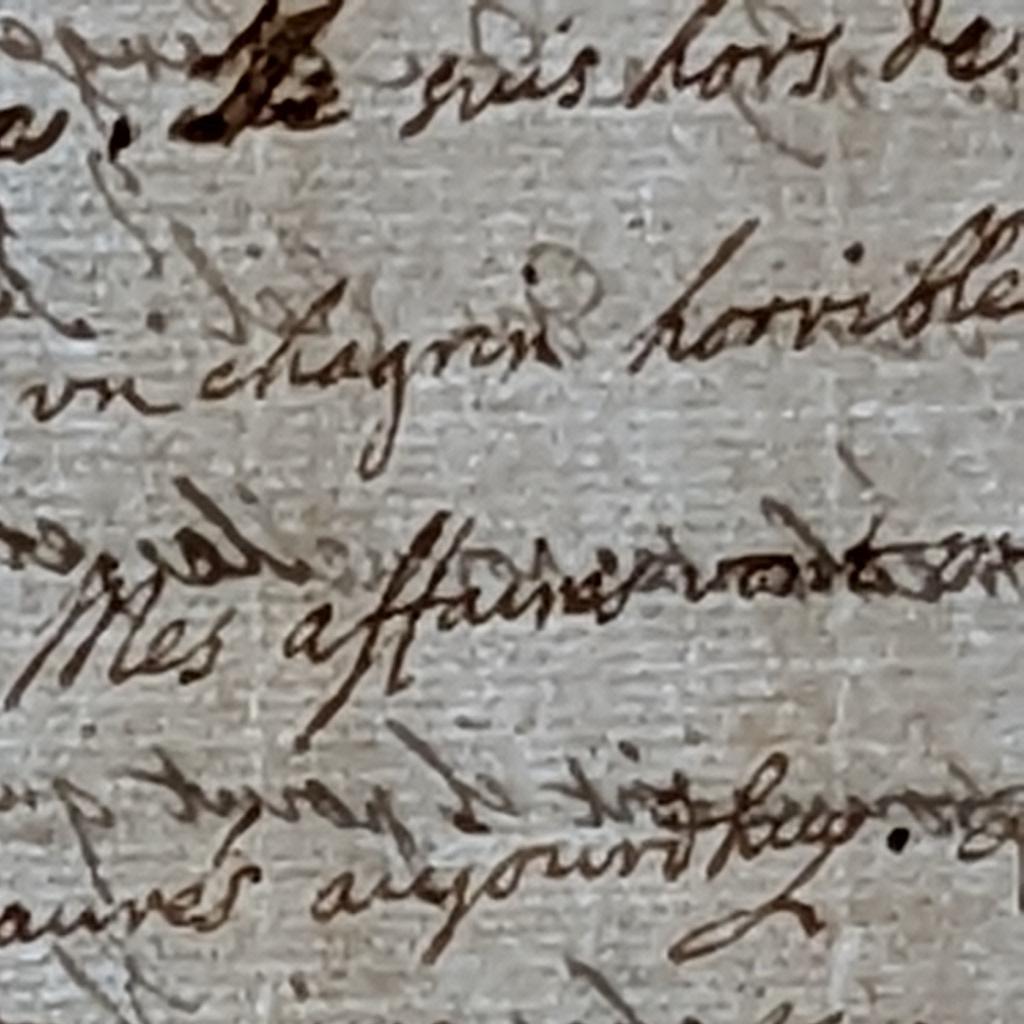 . Je suis hors de
vn chagrin horrible
Mes affaires vont
aures aujourdhuy.